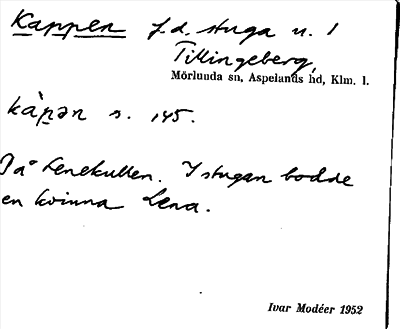 Kappen f.d. stuga u. 1
Tillingeberg,
Mörlunda sn, Aspelands hd, Klm. l.
kàpən s. 145.
På Lenekullen. I stugan bodde
en kvinna Lena.
Ivar Modéer 1952